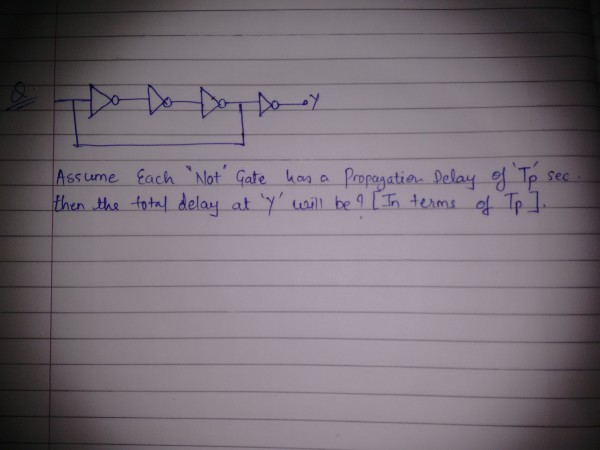 Q.
Y
Assume Each "Not" Gate has a Propagation Delay of 'Tp' sec.
then the total delay at 'Y' will be? [In terms of Tp].